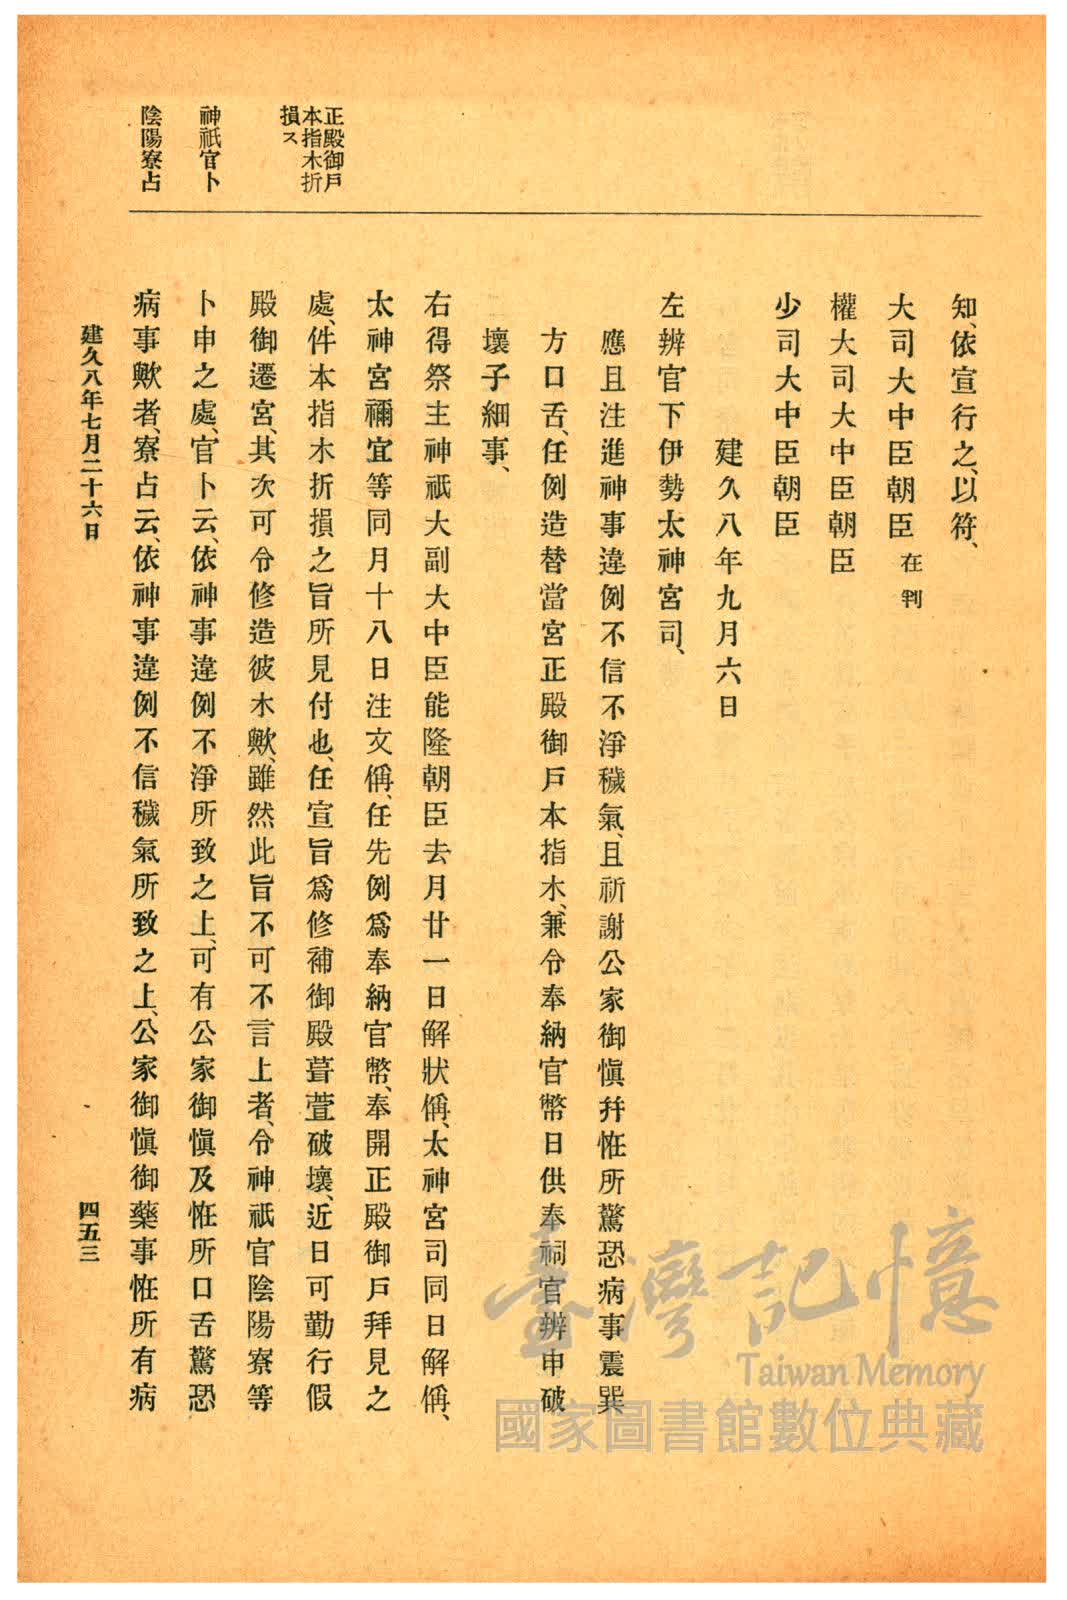 正殿御戸
本指木折
損ス
神祇官卜
陰陽寮占
知、依宣行之、以符、
大司大中臣朝臣 在判
權大司大中臣朝臣
少司大中臣朝臣
建久八年九月六日
左辨官下伊勢太神宮司、
應且注進神事違例不信不淨穢氣、且祈謝公家御愼幷恠所驚恐病事震巽
方口舌、任例造替當宮正殿御戸本指木、兼令奉納官幣日供奉祠官辨申破
壞子細事、
右得祭主神祇大副大中臣能隆朝臣去月廿一日解狀偁、太神宮司同日解偁、
太神宮禰宜等同月十八日注文偁、任先例爲奉納官幣、奉開正殿御戸拜見之
處、件本指木折損之旨所見付也、任宣旨爲修補御殿葺萱破壞、近日可勤行假
殿御遷宮、其次可令修造彼木歟、雖然此旨不可不言上者、令神祇官陰陽寮等
卜申之處、官卜云、依神事違例不淨所致之上、可有公家御愼及恠所口舌驚恐
病事歟者、寮占云、依神事違例不信穢氣所致之上、公家御愼御藥事恠所有病
建久八年七月二十六日
四五三
臺灣記憶
Taiwan Memory
國家圖書館數位典藏